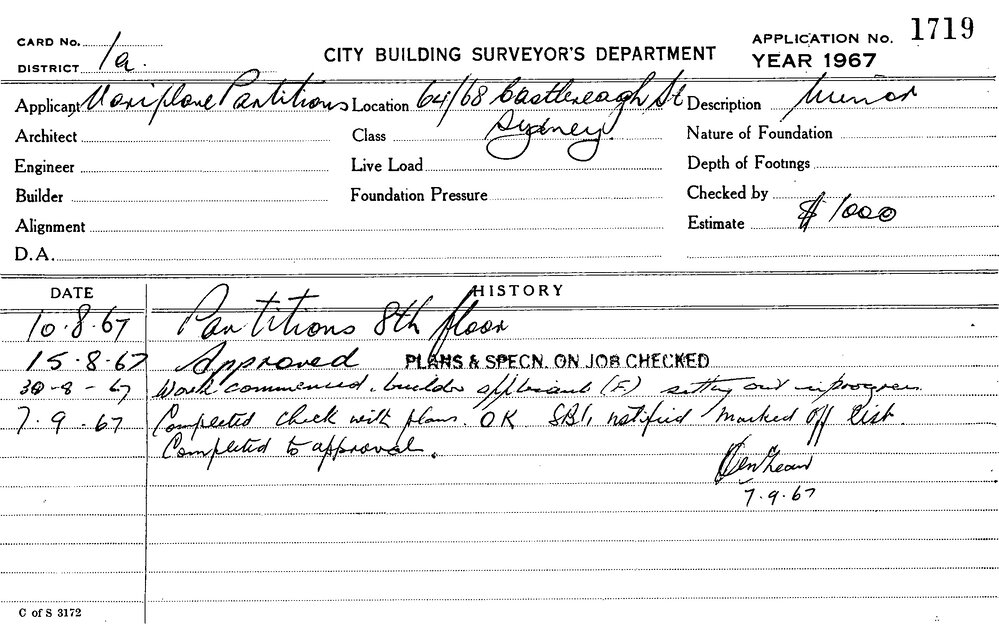 CARD No.
DISTRICT 1a.
CITY BUILDING SURVEYOR'S DEPARTMENT
APPLICATION No. 1719
YEAR 1967
Applicant Variplane Partitions Location 64/68 Castlereagh St Description Minor
Sydney
Architect Class Nature of Foundation
Engineer Live Load Depth of Footings
Builder Foundation Pressure Checked by
Alignment Estimate $1000
D.A.
DATE HISTORY
10.8.67 Partitions 8th floor
15.8.67 Approved PLANS & SPECN. ON JOB CHECKED
30-8-67 Work commenced. builder applicant (F.) setting out in progress.
7.9.67 Completed check with plans. OK SB1, notified marked off list.
Completed to approval.
7.9.67
C of S 3172